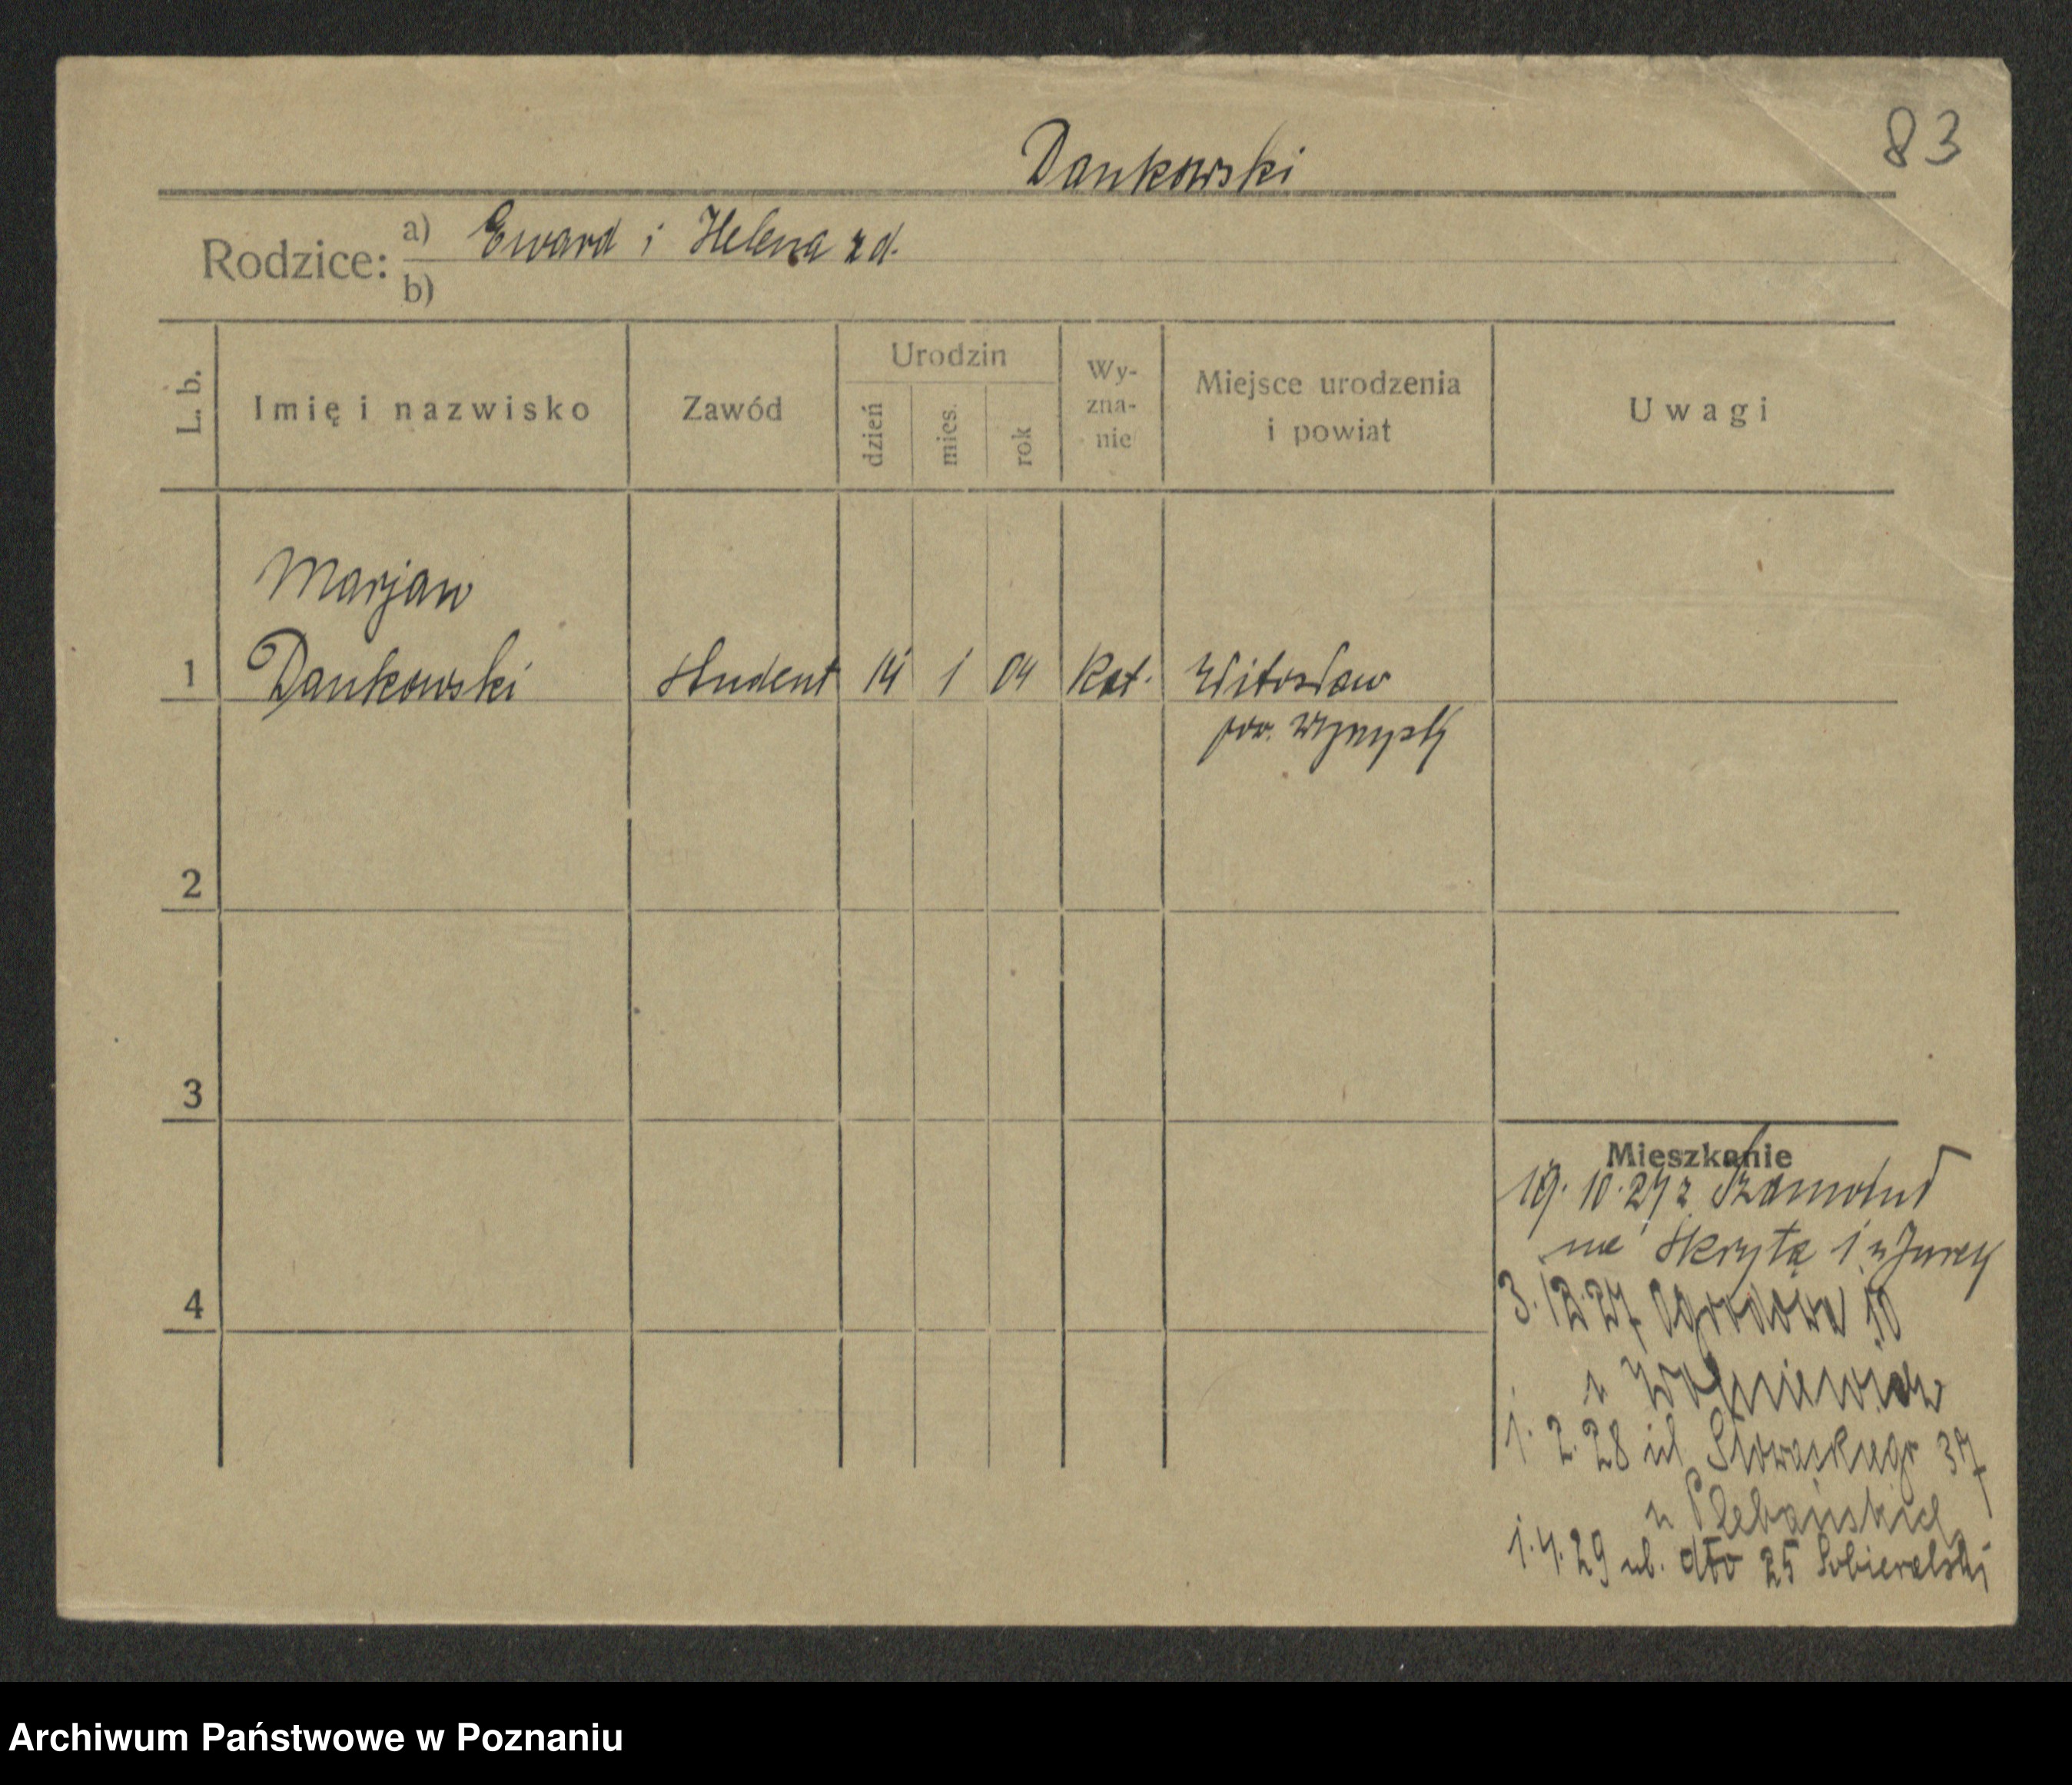 83
Dankowski
Rodzice: a) Eward i Helena z d.
b)
L. b.
Imię i nazwisko
Zawód
Urodzin
dzień
mies.
rok
Wy-
zna-
nie
Miejsce urodzenia
i powiat
Uwagi
Marjan
1 Dankowski student 14 1 04 Kat. Witosław
pow. Wyrzysk
2
3
4
Mieszkanie
19. 10. 27 z Szamotuł
na Skryta 1 u Jurek
3. 12 27 Ogrodowa 10
u
1. 2. 28 ul Słowackiego 37
u Plebańskich
1. 4. 29 ul. dto 25 Sobieralski
Archiwum Państwowe w Poznaniu